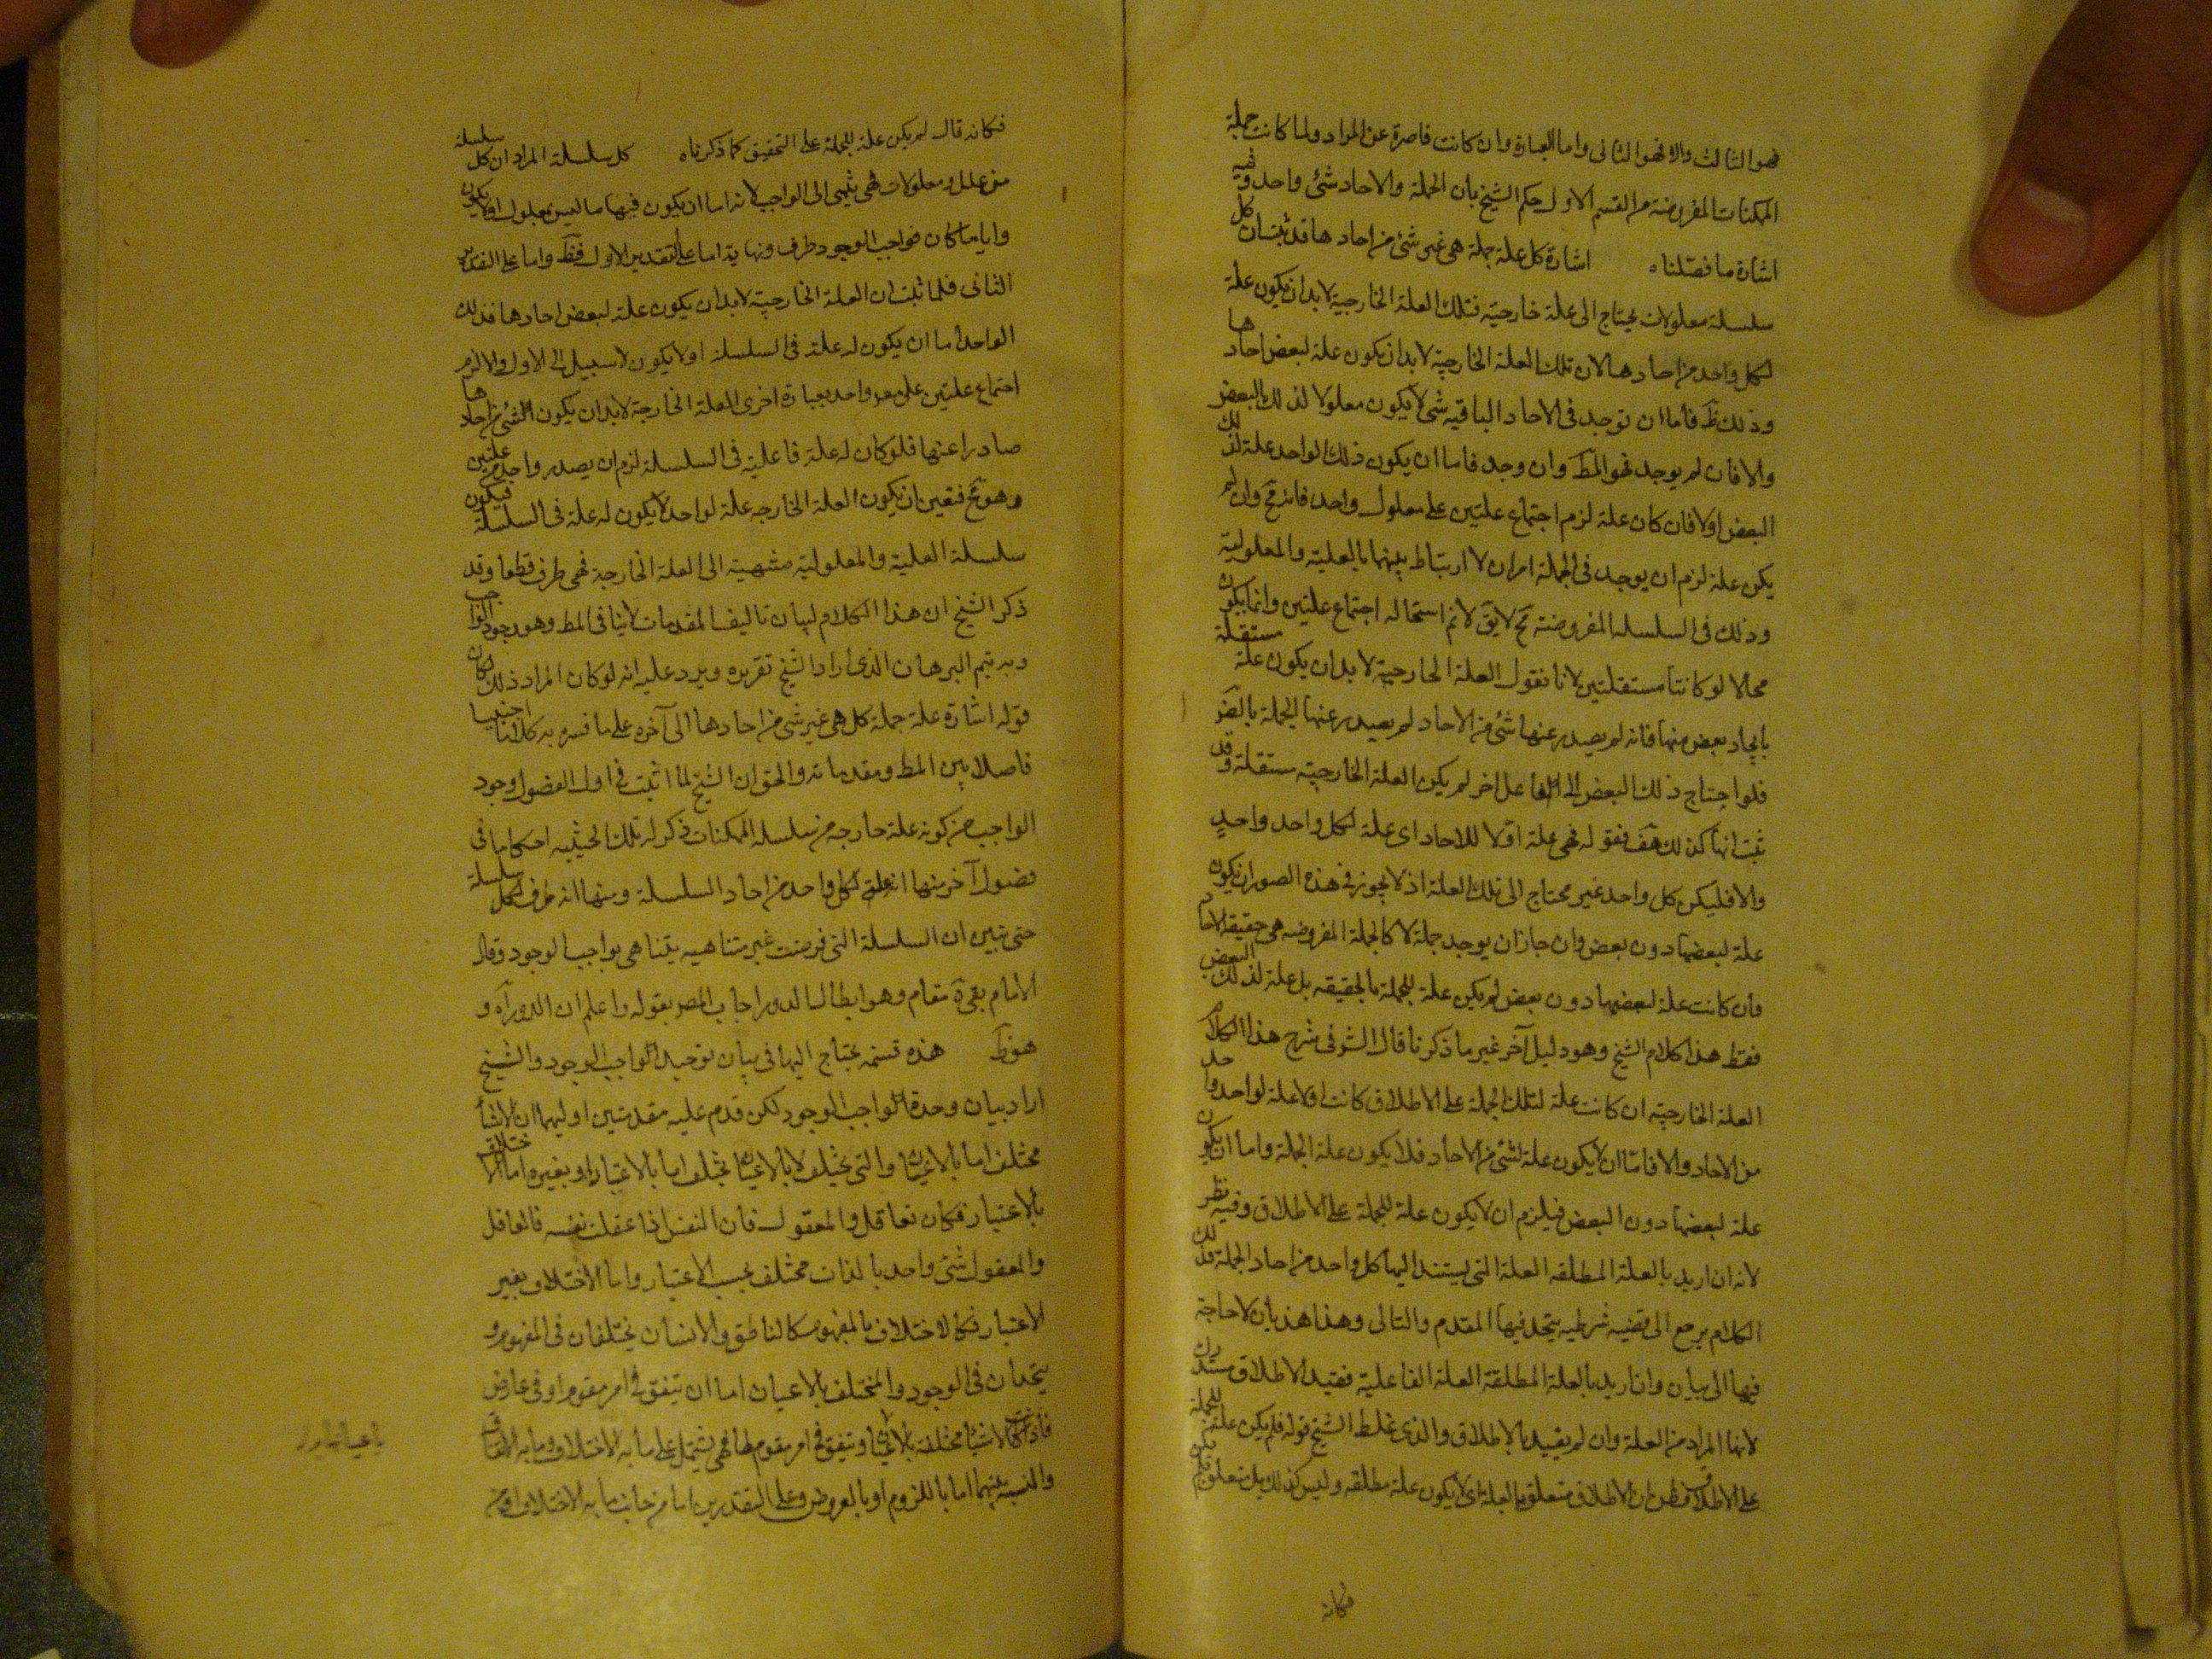 فهو الثالث والا فهو الثانى واما العبارة وان كانت قاصرة عن المراد ولما كانت جملة
الممكنات المفروضة من القسم الاول حكم الشيخ بان الجملة والاحاد شئ واحد وفيه
اشارة ما فصّلناه اشارة كل علة جملة هى غير شئ من احادها قد ثبت ان كل
سلسلة معلولات يحتاج الى علة خارجية فتلك العلة الخارجية لابد ان يكون علة
لكل واحد من احادها لان تلك العلة الخارجية لابد ان يكون علة لبعض احادها
وذلك ظ فاما ان توجد فى الاحاد الباقيه شئ لا يكون معلولا لذلك البعض
والا فان لم يوجد فهو المط وان وجد فاما ان يكون ذلك الواحد علة لذلك
البعض اولا فان كان علة لزم اجتماع علتين على معلول واحد فانه مح وان لم
يكن علة لزم ان يوجد فى الجملة امران لا ارتباط بينهما بالعلية والمعلولية
وذلك فى السلسله المفروضة مح لا يق لانم استحاله اجتماع علتين وانما يكون
محالا لو كانتا مستقلتين لانا نقول العلة الخارجية لابد ان يكون علة مستقلة
بايجاد بعض منها فانه لم يصدر عنها شئ من الاحاد لم يصدر عنها الجملة بالضر
فلو احتاج ذلك البعض الى الفاعل اخر لم يكن العلة الخارجية مستقلة وقد
ثبت انها كذلك هف فقوله فهى علة اولا للاحاد اى علة لكل واحد واحدٍ
والا فليكن كل واحد غير محتاج الى تلك العلة اذ لا يجوز فى هذه الصور ان يكون
علة لبعضها دون بعض وان جاز ان يوجد جملة لا كالجملة المفروضه هى حقيقة الاحاد
فان كانت علة لبعضها دون بعض لم يكن علة للجملة بالحقيقه بل علة لذلك البعض
فقط هذا كلام الشيخ وهو دليل آخر غير ما ذكرنا قال الش فى شرح هذا الكلام
العلة الخارجية ان كانت علة لتلك الجملة على الاطلاق كانت اولا علة لواحد واحد
من الاحاد والا فاما ان لا يكون علة لشئ من الاحاد فلا يكون علة الجملة واما ان يكون
علة لبعضها دون البعض فيلزم ان لا يكون علة للجملة على الاطلاق وفيه نظر
لانه ان اريد بالعلة المطلقه العلة التى يستند اليها كل واحد من احاد الجملة فذلك
الكلام يرجع الى قضيه شرطيه يتحد فيها المقدم والتالى وهذا هذيان لا حاجة
فيها الى بيان وان اريد بالعلة المطلقة العلة الفاعلية فقيد الاطلاق مستدرك
لانها المراد من العلة وان لم يقيد بالاطلاق والذى غلط الشيخ قوله فلم يكن علة للجملة
على الاطلاق فظن ان الاطلاق متعلق بالعلة اى لا يكون علة مطلقه وليس كذلك بل متعلق
فكانه
فكانه قال لم يكن علة للجملة على التحقيق كما ذكرناه كل سلسلة المراد ان كل سلسلة
من علل ومعلولات فهى ينتهى الى الواجب لانه اما ان يكون فيها ما ليس بمعلول اولا يكون
وايا ما كان فواجب الوجود طرف ونهاية اما على التقدير الاول فظ واما على التقدير
الثانى فلما ثبت ان العلة الخارجية لابد ان يكون علة لبعض احادها فذلك
الواحد اما ان يكون له علة فى السلسلة اولا يكون لا سبيل الى الاول والا لزم
اجتماع علتين على معلول واحد بعبارة اخرى العلة الخارجة لابد ان يكون الشئ من احادها
صادرا عنها فلو كان له علة فاعلية فى السلسلة لزم ان يصدر واحد من علتين
وهو مح فتعين ان يكون العلة الخارجه علة لواحد لا يكون له علة فى السلسلة فيكون
سلسلة العلية والمعلولية منتهية الى العلة الخارجة فهى طرف قطعا وقد
ذكر الشيخ ان هذا الكلام لبيان تاليف المقدمات لاينا فى المط وهو وجود الواجب
وبه يتم البرهان الذى اراد الشيخ تقريره ويرد عليه انه لو كان المراد ذلك كان
قوله اشارة علة جملة كل هى غير شئ من احادها الى آخره على ما فسره به كلاما اجنبيا
فاصلا بين المط ومقدماته والحق ان الشيخ لما اثبت فى اول الفصول وجود
الواجب من كونه علة خارجه من سلسله الممكنات ذكر له تلك الحيثيه احكاما فى
فصول آخر منها انه علة لكل واحد من احاد السلسلة ومنها انه طرف لكل سلسلة
حتى تبين ان السلسلة التى فرضت غير متناهيه يتناهى بواجب الوجود وقال
الامام بقى مقام وهو ابطال الدور اجاب المصر بقوله واعلم ان الدور آه و
هو ظ هذه قسمة يحتاج اليها فى بيان توحيد الواجب الوجود والشيخ
اراد بيان وحدة الواجب الوجود لكن قدم عليه مقدمتين اوليهما ان الاشيا
مختلف اما بالاعيان والتى يختلف لا بالاعيان يختلف اما بالاعتبار او بغيره واما الاختلاف
بالاعتبار فكان تعاقل والمعقول فان النفس اذا عقلت نفسه فالعاقل
والمعقول شئ واحد بالذات مختلف بحسب الاعتبار واما الاختلاف بغير
الاعتبار فكالاختلاف بالمفهوم كالناطق والانسان يختلفان فى المفهوم و
يتحدان فى الوجود والمختلف بالاعيان اما ان يتفق فى امر مقوم او فى عارض
فاذا كانت الاشيا مختلفة بالاعيان ويتفق فى امر مقوم لها فهى يشتمل على ما به الاختلاف وما به الاتفاق
والنسبه بينهما اما باللزوم او بالعروض وعلى التقديرين اما من جانب ما به الاختلاف او من